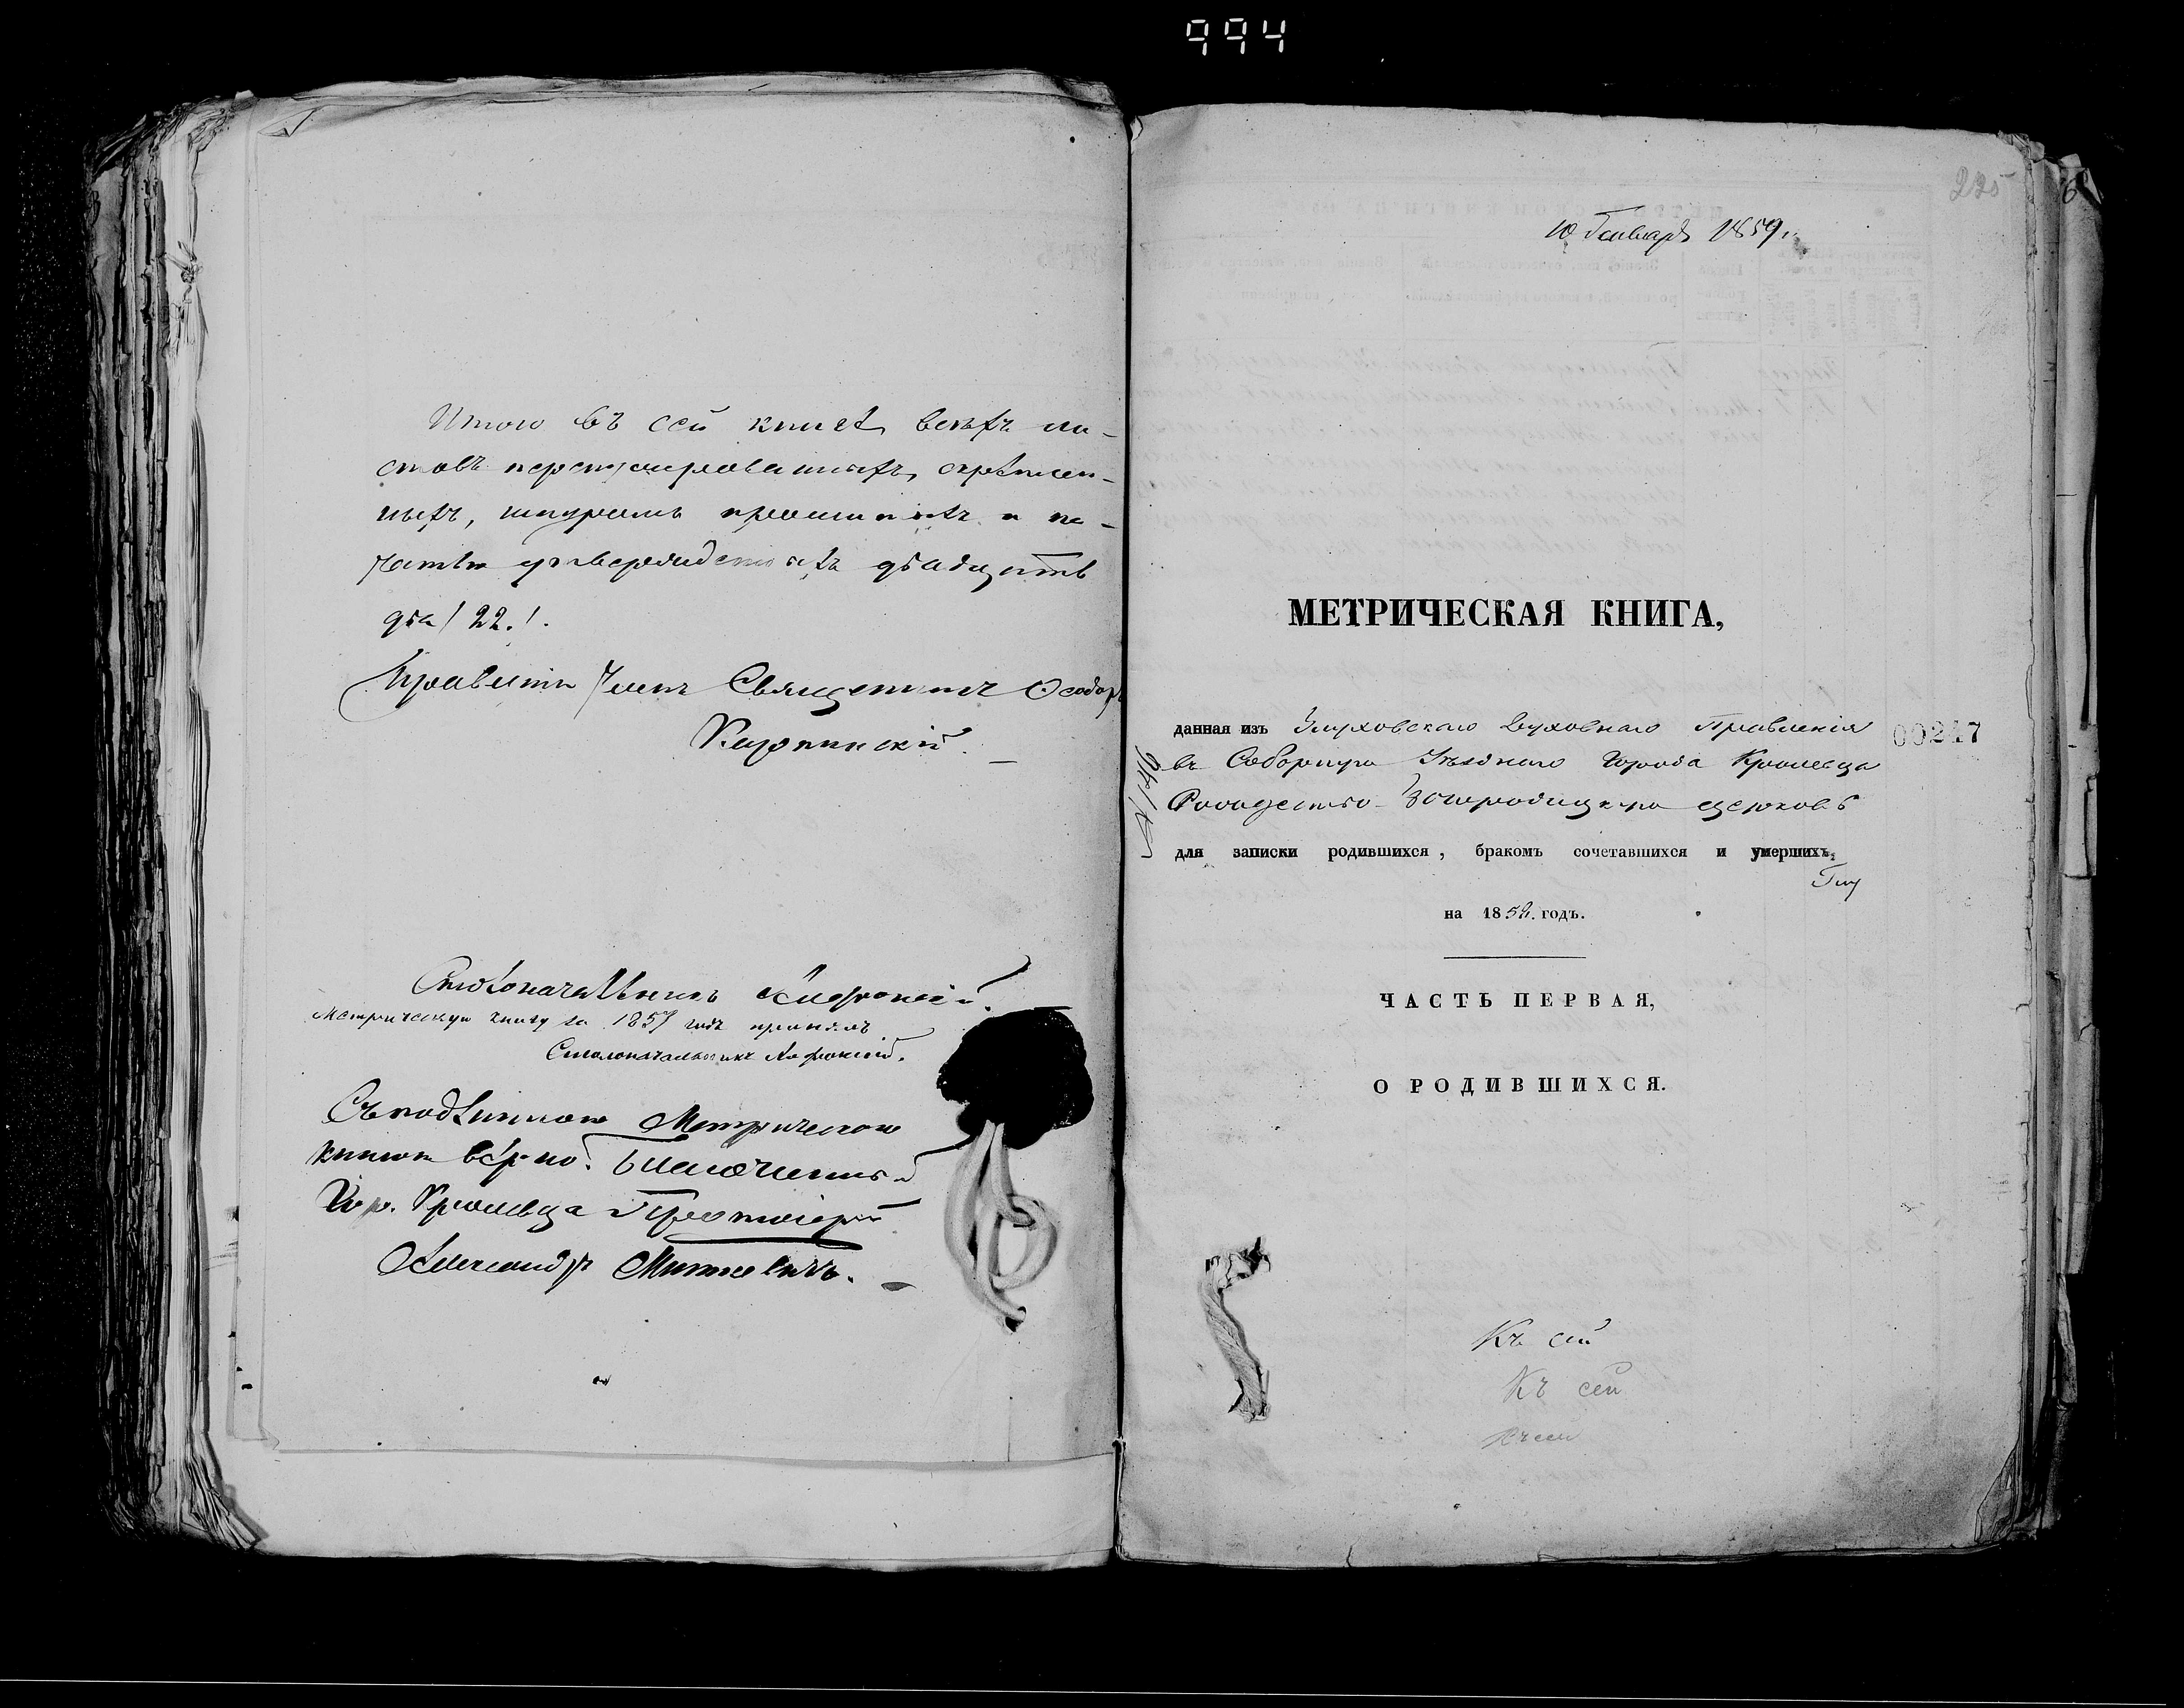 994
Итого въ сей книгѣ всѣхъ ли-
стовъ перенумерованныхъ, скрѣплен-
ныхъ, шнуромъ прошитыхъ и пе-
чатью утвержденныхъ двадцать
два / 22. /.
Правленія Членъ Священникъ Ѳеодоръ
Карпинскій.
Столоначальникъ
Метрическую книгу за 1857 годъ принялъ
Столоначальникъ
Съ подлинною Метрическою
книгою вѣрно: Благочинный
Гор. Кролевца Протоіерей
Александръ Миткевичъ.
225
10 Генваря 1859
МЕТРИЧЕСКАЯ КНИГА,
данная изъ Глуховскаго Духовнаго Правленія
00247
въ Соборную Уѣзднаго Города Кролевца
Рождество-Богородицкую церковь
для записки родившихся, бракомъ сочетавшихся и умершихъ,
Глу
на 1858. годъ.
ЧАСТЬ ПЕРВАЯ,
О РОДИВШИХСЯ.
Къ сей
Къ сей
Къ сей